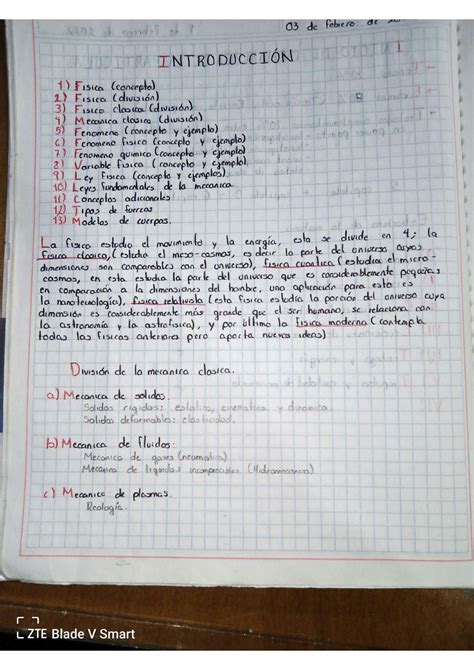 03 de febrero de
INTRODUCCIÓN
1) Fisica (concepto)
2) Fisica (división)
3) Fisica clasica (división)
4) Mecanica clasica (división)
5) Fenomeno (concepto y ejemplo)
6) Fenomeno fisico (concepto y ejemplo)
7) Fenomeno quimico (concepto y ejemplo)
2) Variable fisica (concepto y ejemplo)
9) Ley fisica (concepto y ejemplos)
10) Leyes fundamentales de la mecanica
11) Conceptos adicionales
12) Tipos de fuerzas
13) Modelos de cuerpos.
La fisica estudia el movimiento y la energía, esta se divide en 4; la
fisica clasica, (estudia el meso-cosmos, es decir la parte del universo cuyas
dimensiones son comparables con el universo), fisica cuantica (estudia el micro-
cosmos, en esta estudia la parte del universo que es considerablemente pequeña
en comparación a la dimensiones del hombre, una aplicación para esto es
la nanotecnología), fisica relativista (esta fisica estudia la porción del universo cuya
dimensión es considerablemente más grande que el ser humano, se relaciona con
la astronomía y la astrofisica), y por último la fisica moderna (contempla
todas las fisicas anteriores pero aporta nuevas ideas)
División de la mecanica clasica.
a) Mecanica de solidos.
Solidos rigidos: estatica, cinematica y dinamica
Solidos deformables: elasticidad.
b) Mecanica de fluidos:
Mecanica de gases (neumatica)
Mecanica de liquidos incompresibles (Hidromecanica)
c) Mecanica de plasmas.
Reología.
ZTE Blade V Smart